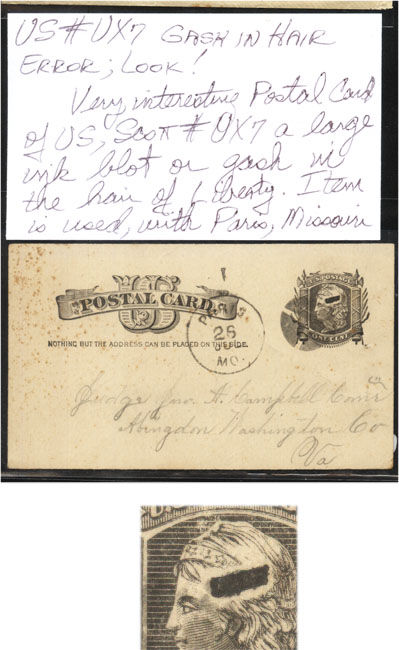 US # UX7 GASH IN HAIR
ERROR; LOOK!
Very, interesting Postal Card
of US, Scott # UX7 a large
ink blot or gash in
the hair of Liberty. Item
is used, with Paris, Missouri
US
POSTAL CARD
NOTHING BUT THE ADDRESS CAN BE PLACED ON THIS SIDE.
PARIS
26
MO.
U.S. POSTAGE
ONE CENT
George Jno. A. Campbell Comr
Abingdon Washington Co
Va